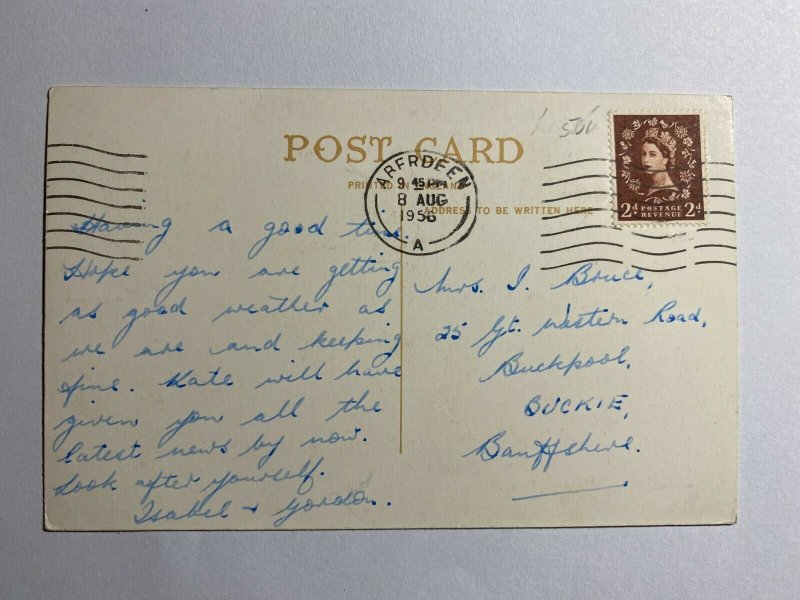 POST CARD
PRINTED IN ENGLAND
ADDRESS TO BE WRITTEN HERE
ABERDEEN
9 45 PM
8 AUG
1956
A
2d POSTAGE REVENUE 2d
Having a good time.
Hope you are getting
as good weather as
we are and keeping
fine. Kate will have
given you all the
latest news by now.
Look after yourself.
Isabel + Gordon.
Mrs. I. Bruce,
25 Gt. Western Road,
Buckpool,
BUCKIE,
Banffshire.